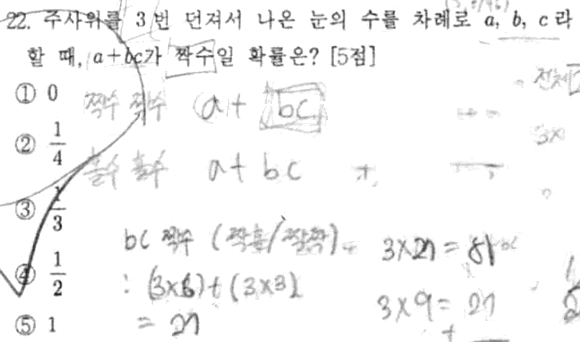 22. 주사위를 3번 던져서 나온 눈의 수를 차례로 a, b, c라
할 때, a+bc가 짝수일 확률은? [5점]
① 0
짝수 짝수 a + bc
② 1/4
홀수 홀수 a + bc
③ 1/3
bc 짝수 (짝홀/짝짝)
3×27 = 81
④ 1/2
: (3×6)+(3×3)
3×9 = 27
= 27
⑤ 1